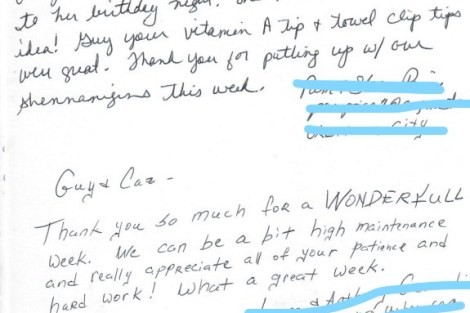 to her birthday night.
idea! Guy your vitamin A tip & towel clip tips
were great. Thank you for putting up w/ our
shennanigins this week.
city
Guy & Caz -
Thank you so much for a WONDERFULL
week. We can be a bit high maintenance
and really appreciate all of your patience and
hard work! What a great week.